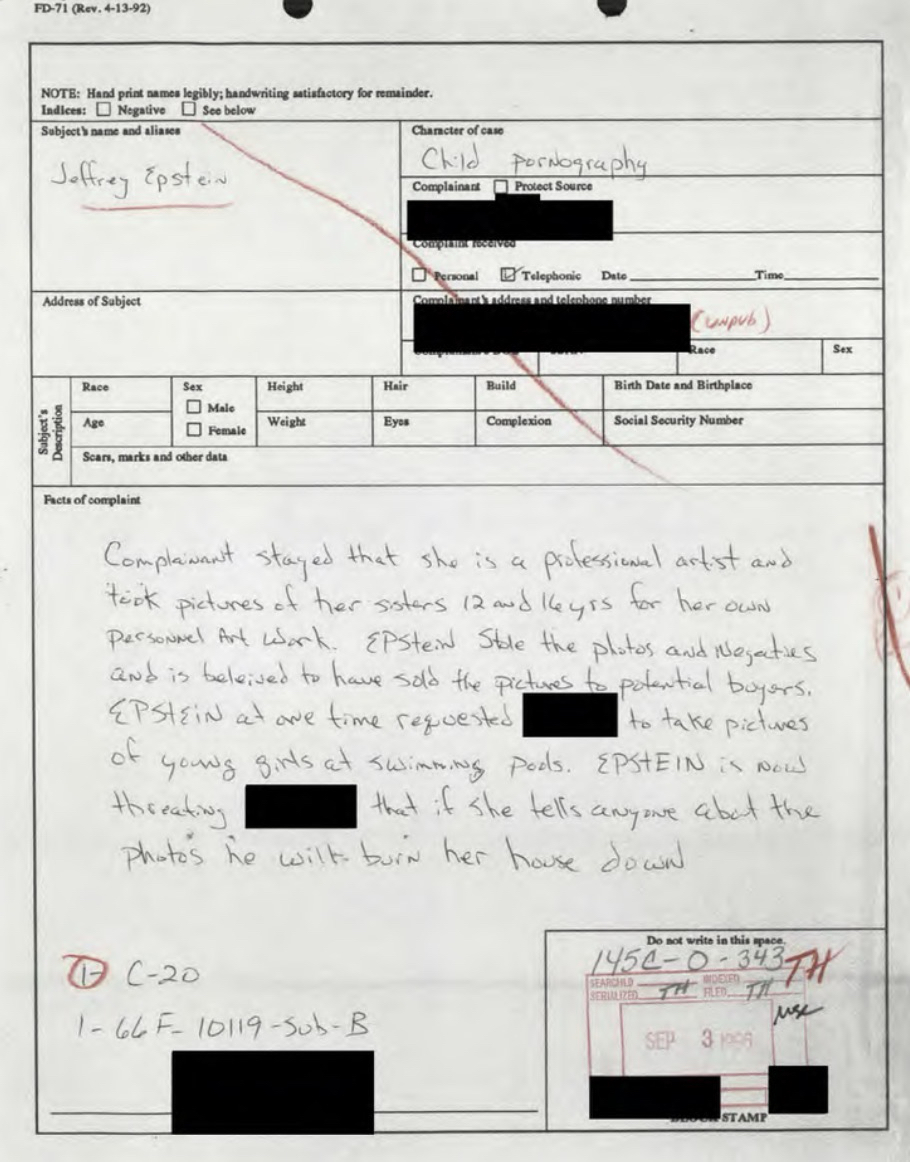 FD-71 (Rev. 4-13-92)
NOTE: Hand print names legibly; handwriting satisfactory for remainder.
Indices: Negative See below
Subject's name and aliases
Jeffrey Epstein
Character of case
Child pornography
Complainant Protect Source
Complaint received
Personal Telephonic Date Time
Address of Subject
Complainant's address and telephone number
(unpub)
Race Sex
Subject's Description
Race Sex Height Hair Build Birth Date and Birthplace
Male
Female
Age Weight Eyes Complexion Social Security Number
Scars, marks and other data
Facts of complaint
Complainant stayed that she is a professional artist and
took pictures of her sisters 12 and 16 yrs for her own
personnel Art Work. EPStein Stole the photos and Negatives
and is beleived to have sold the pictures to potential buyers.
EPSTEIN at one time requested to take pictures
of young girls at swimming pools. EPSTEIN is now
threating that if she tells anyone about the
photos he will burn her house down
1- C-20
1- 66F-10119-Sub-B
Do not write in this space.
145C-0-343
TH
SEARCHED INDEXED
SERIALIZED TH FILED TH
SEP 3 1996
BLOCK STAMP